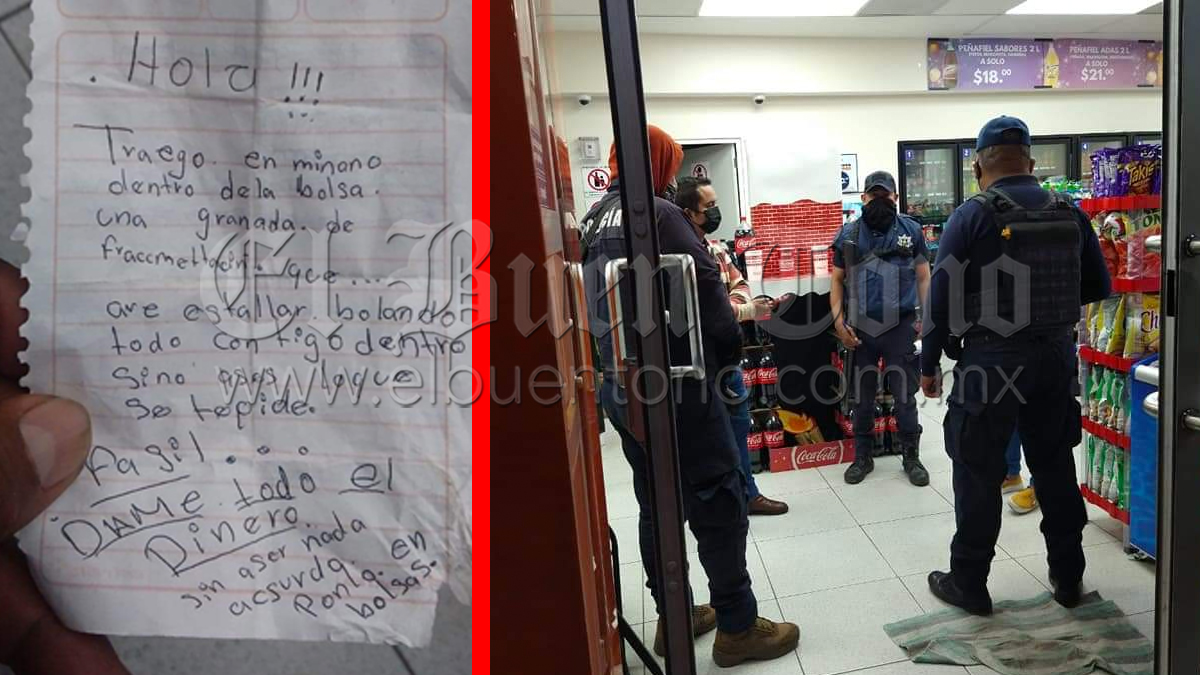 . Hola !!!
Traego. en minano
dentro dela bolsa.
una granada. de
fraccmettacion. que....
are estallar. bolandon
todo contigo dentro
sino agas loque
se tepide.
fasil...
DAME todo el
Dinero.
sin aser nada
acsurda.
Ponla. en
bolsas.
El Buen Tono
www.elbuentono.com.mx
PEÑAFIEL SABORES 2 L
A SOLO
$18.00
PEÑAFIEL ADAS 2 L
A SOLO
$21.00
CIA
1
4
Takis
Coca-Cola
Coca-Cola
Coca-Cola
Coca-Cola